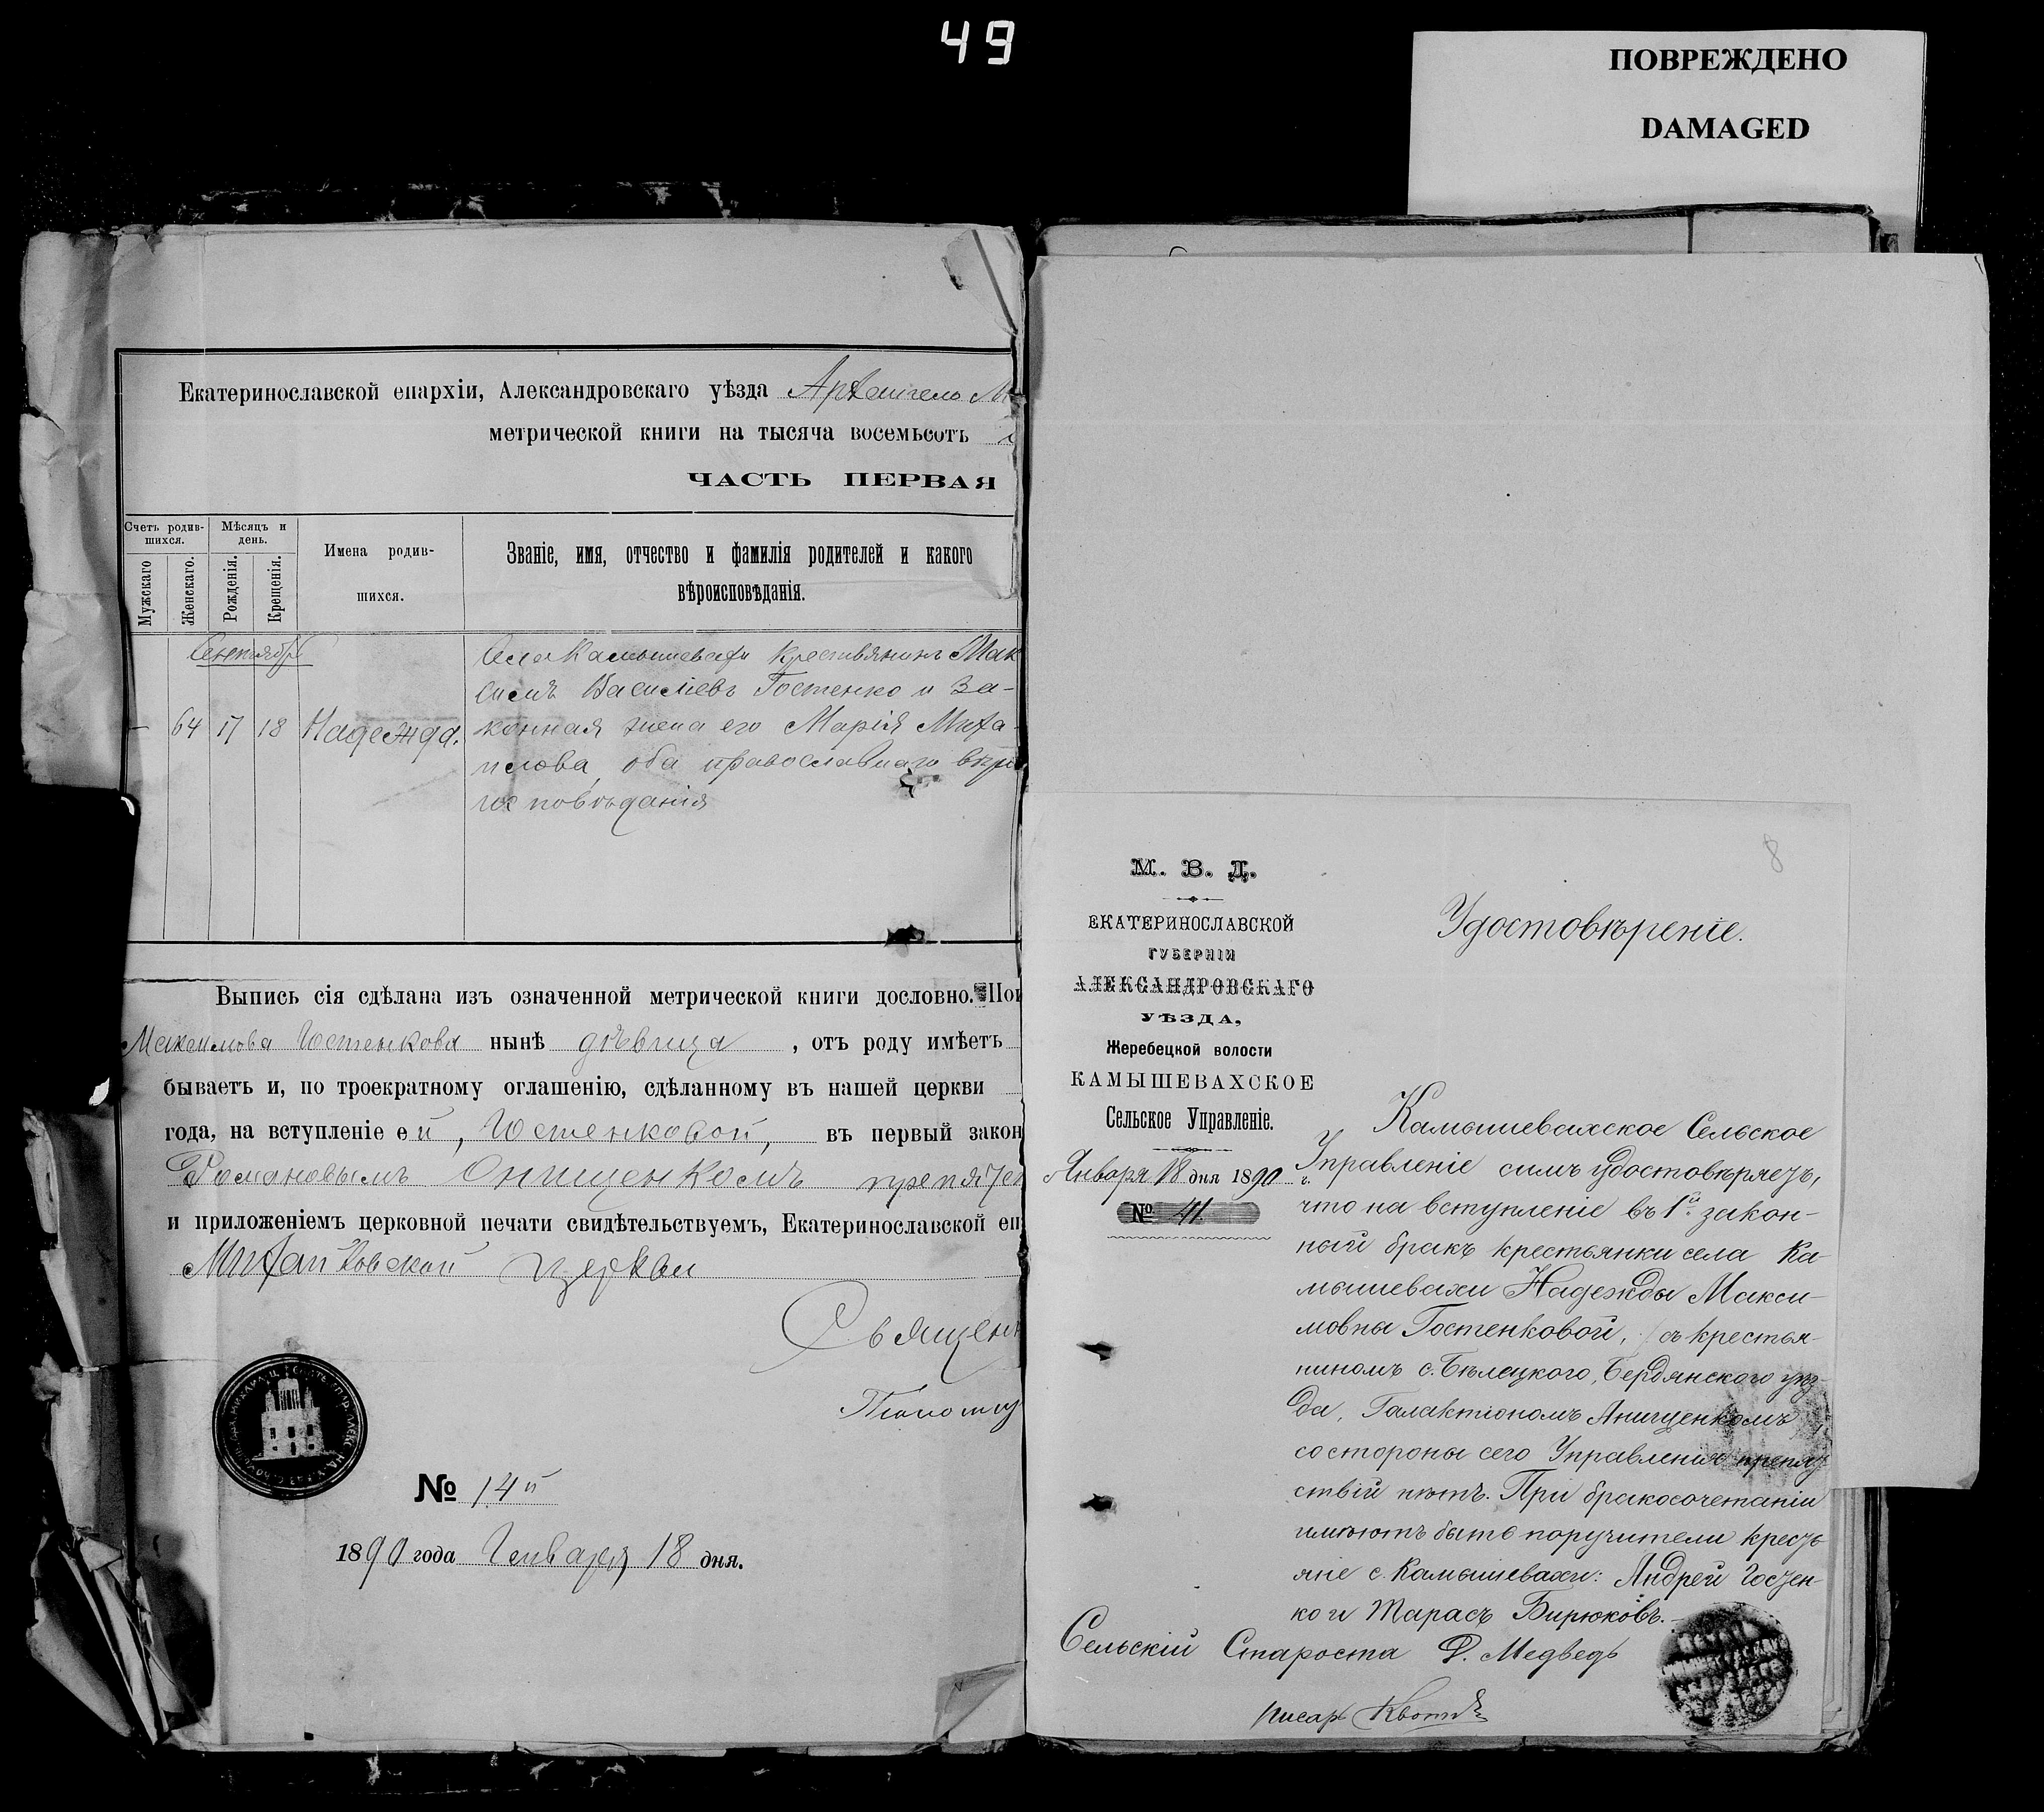 49
ПОВРЕЖДЕНО
DAMAGED
Екатеринославской епархіи, Александровскаго уѣзда Архангело М
метрической книги на тысяча восемьсотъ
ЧАСТЬ ПЕРВАЯ
Счетъ родив-
шихся.
Мѣсяцъ и
день.
Имена родив-
шихся.
Званіе, имя, отчество и фамилія родителей и какого
вѣроисповѣданія.
Мужскаго
Женскаго.
Рожденія.
Крещенія.
Сентябрь
Села Камышевахи крестьянинъ Мак
симъ Василіевъ Гостенко и за-
— 64 17 18 Надежда. конная жена его Марія Миха-
илова, оба православнаго вѣро
исповѣданія
Выпись сія сдѣлана изъ означенной метрической книги дословно. Пои
Максимова Гостенкова нынѣ дѣвица, отъ роду имѣетъ
бываетъ и, по троекратному оглашенію, сдѣланному въ нашей церкви
года, на вступленіе ей, Гостенковой, въ первый закон
Романовымъ Онищенкомъ препятст
и приложеніемъ церковной печати свидѣтельствуемъ, Екатеринославской еп
Михайловской церкви
Священн
№ 14й
1890 года Генваря 18 дня.
8
М. В. Д.
ЕКАТЕРИНОСЛАВСКОЙ
ГУБЕРНІИ
АЛЕКСАНДРОВСКАГО
УѢЗДА,
Жеребецкой волости
КАМЫШЕВАХСКОЕ
Сельское Управленіе.
Января 18 дня 1890 г.
№ 41.
Удостовѣреніе.
Камышевахское Сельское
Управленіе симъ удостовѣряетъ,
что на вступленіе въ 1й закон-
ный бракъ крестьянки села Ка-
мышевахи Надежды Макси-
мовны Гостенковой, съ крестья-
ниномъ с. Бѣлецкого, Бердянского уѣз-
да, Галактіономъ Анищенкомъ,
со стороны сего Управленія препят
ствій нѣтъ. При бракосочетаніи
имѣютъ быть поручители кресть
яне с. Камышевахи: Андрей Гостен-
ко и Тарасъ Бирюковъ.
Сельскій Староста Ф. Медведь
писарь